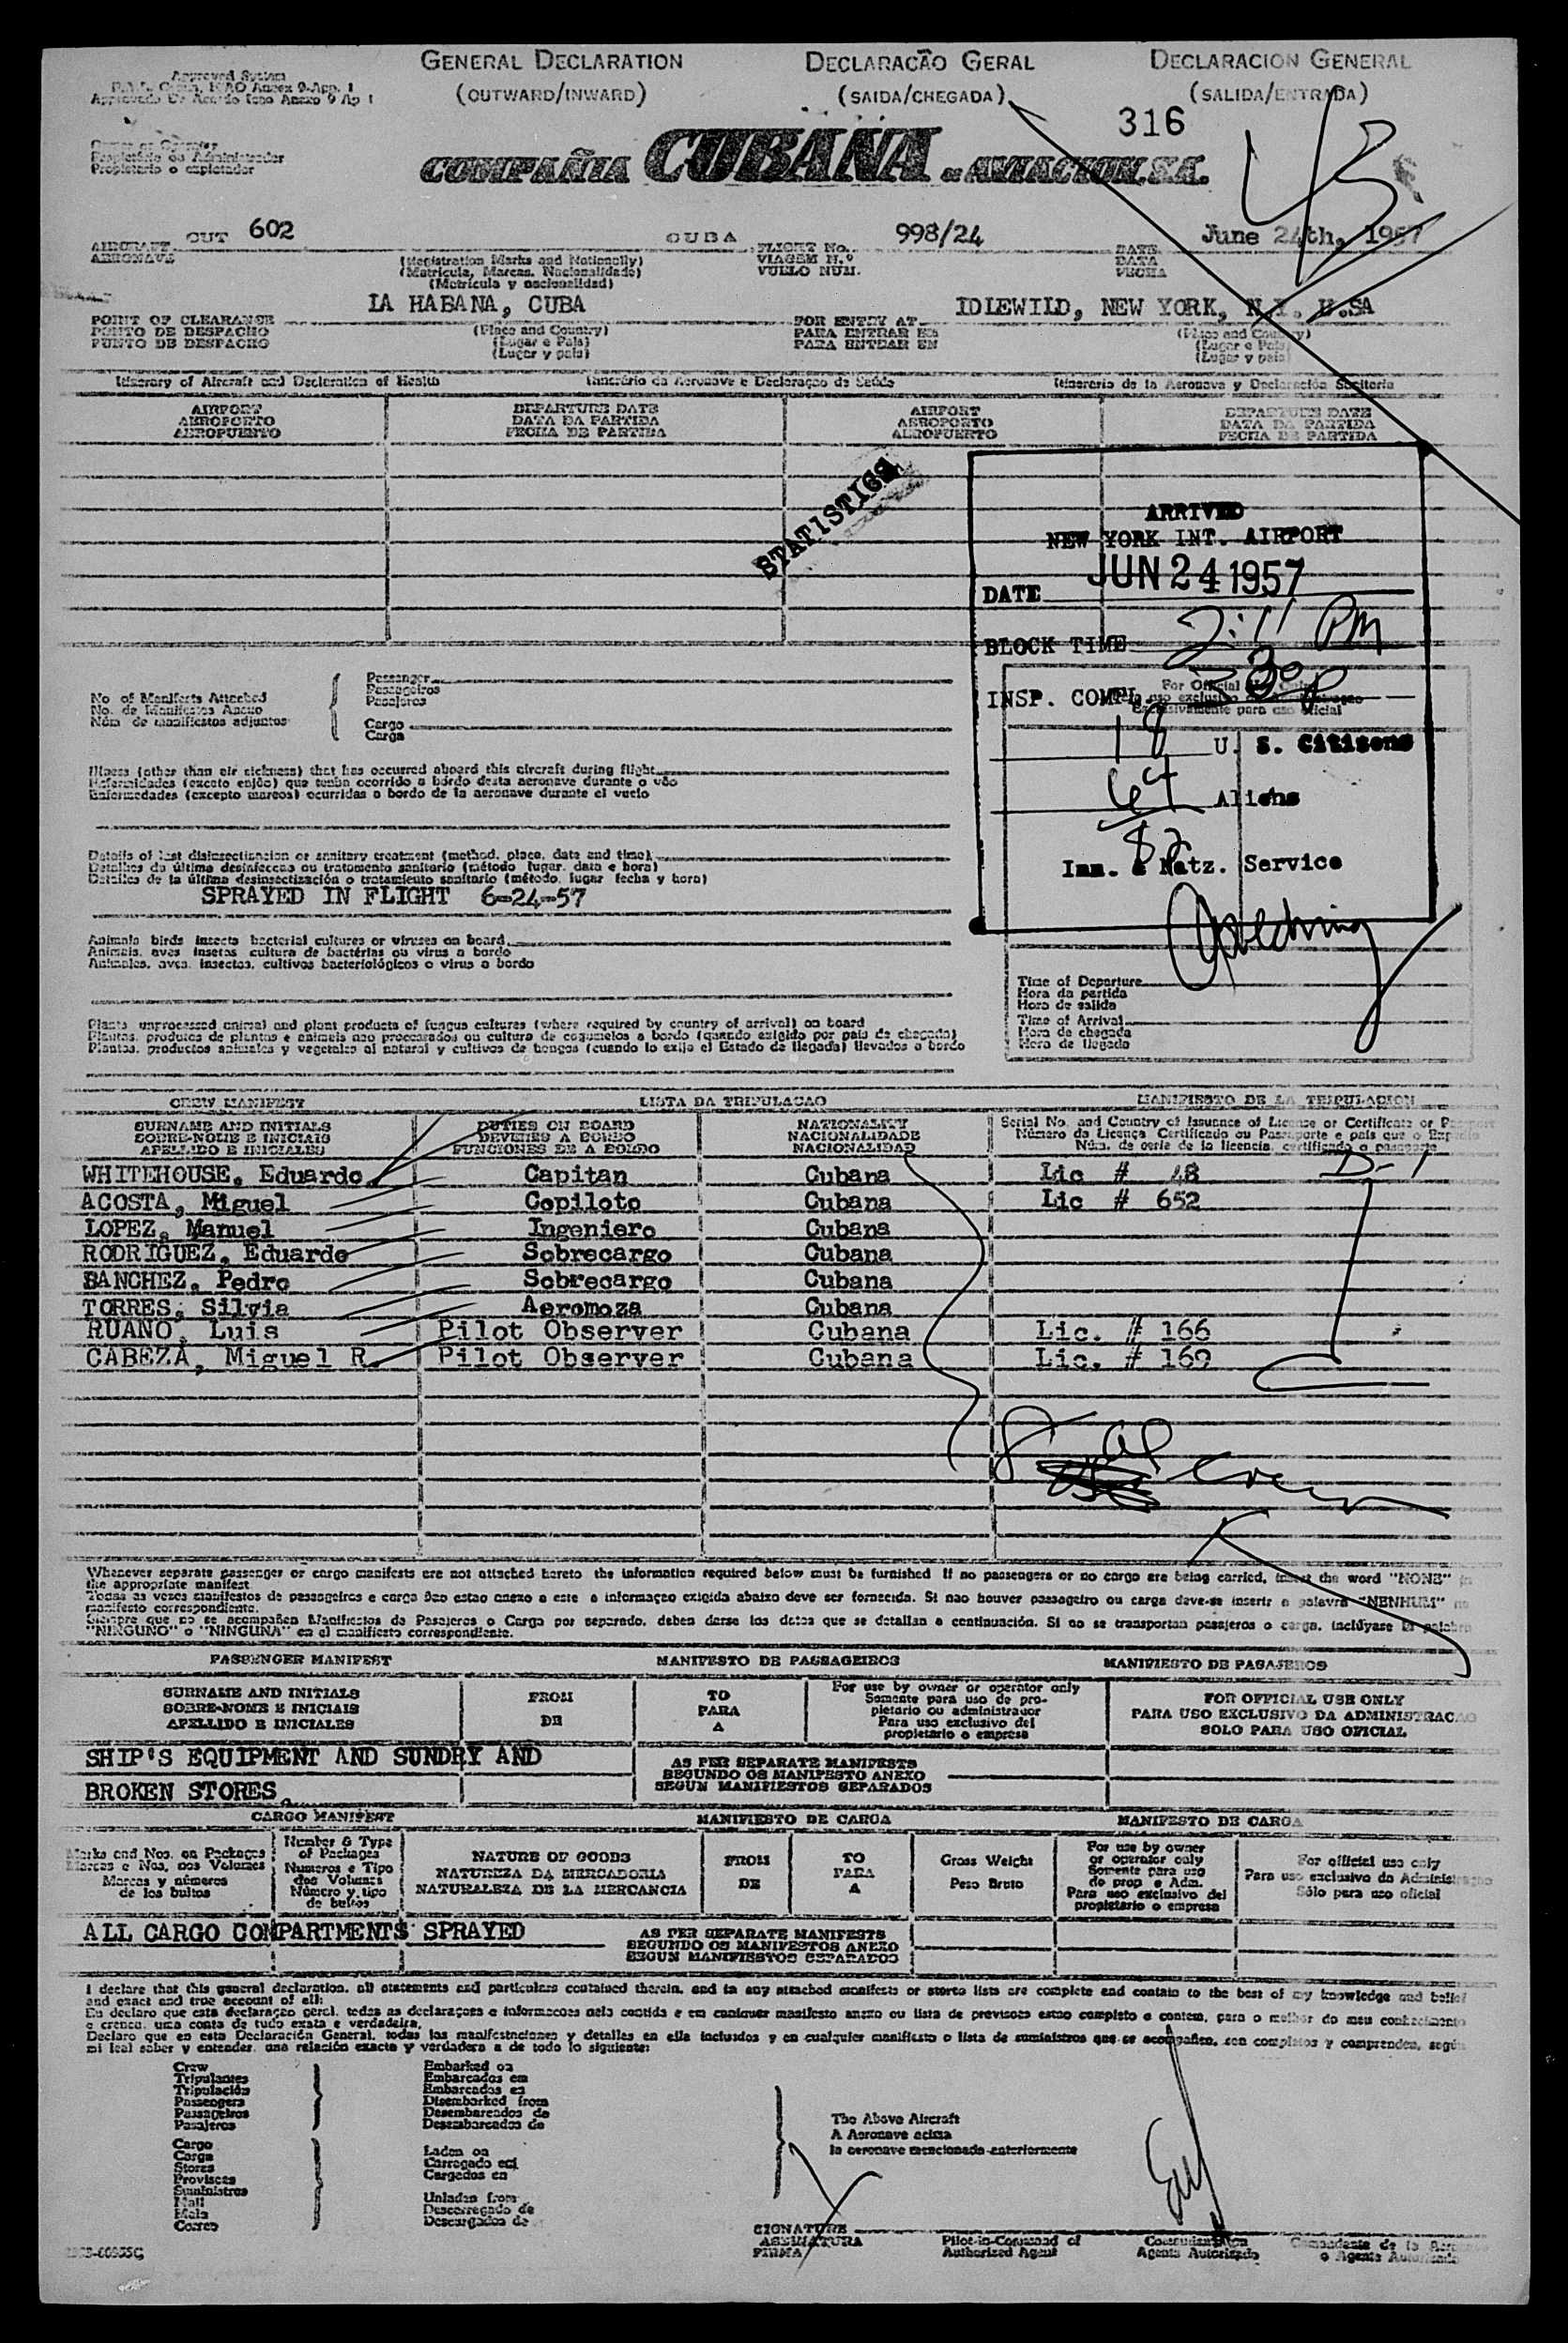 GENERAL DECLARATION DECLARAÇÃO GERAL DECLARACION GENERAL
(OUTWARD/INWARD) (SAIDA/CHEGADA) (SALIDA/ENTRADA)
316
Propietario o explotador
COMPAÑIA CUBANA DE AVIACION, S.A.
AIRCRAFT CUT 602 CUBA FLIGHT No. 998/24 DATE June 24th, 1957
AERONAVE (Registration Marks and Nationally) VIAGEM N.º DATA
(Matricula, Marcas, Nacionalidade) VUELO NUM. FECHA
(Matrícula y nacionalidad)
POINT OF CLEARANCE LA HABANA, CUBA FOR ENTRY AT IDLEWILD, NEW YORK, N.Y. U.SA
PONTO DE DESPACHO (Place and Country) PARA ENTRAR EM (Place and Country)
PUNTO DE DESPACHO (Lugar e Pais) PARA ENTRAR EN (Lugar e Pais)
(Lugar y país) (Lugar y país)
Itinerary of Aircraft and Declaration of Health Itinerário da Aeronave e Declaração de Saúde Itinerario de la Aeronave y Declaración Sanitaria
AIRPORT DEPARTURE DATE AIRPORT DEPARTURE DATE
AEROPORTO DATA DA PARTIDA AEROPORTO DATA DA PARTIDA
AEROPUERTO FECHA DE PARTIDA AEROPUERTO FECHA DE PARTIDA
STATISTICS
ARRIVED
NEW YORK INT. AIRPORT
DATE JUN 24 1957
BLOCK TIME 2:11 PM
INSP. COMPL.
18 U. S. Citizens
64 Aliens
82
Imm. & Natz. Service
No of Manifests Attached
No. de Manifestos Anexo
Núm de manifiestos adjuntos
Passenger
Passageiros
Pasajeros
Cargo
Carga
Illness (other than air sickness) that has occurred aboard this aircraft during flight
Enfermidades (exceto enjôo) que tenha ocorrido a bôrdo desta aeronave durante o vôo
Enfermedades (excepto mareos) ocurridas a bordo de la aeronave durante el vuelo
Details of last disinsectisacion or sanitary treatment (method, place, date and time)
Detalhes da última desinfeccao ou tratamento sanitario (método lugar, data e hora)
Detalles de la última desinsectización o tratamiento sanitario (método, lugar fecha y hora)
SPRAYED IN FLIGHT 6-24-57
Animals birds insects bacterial cultures or viruses on board
Animais, aves insetos cultura de bactérias ou virus a bordo
Animales, aves, insectos, cultivos bacteriológicos o virus a bordo
Time of Departure
Hora da partida
Hora de salida
Time of Arrival
Hora de chegada
Hora de llegada
Plants unprocessed animal and plant products of fungus cultures (where required by country of arrival) on board
Plantas, produtos de plantas e animais nao processados ou cultura de cogumelos a bordo (quando exigido por pais de chegada)
Plantas, productos animales y vegetales al natural y cultivos de hongos (cuando lo exija el Estado de llegada) llevados a bordo
CREW MANIFEST LISTA DA TRIPULACAO MANIFIESTO DE LA TRIPULACION
SURNAME AND INITIALS DUTIES ON BOARD NATIONALITY Serial No. and Country of Issuance of License or Certificate or
SOBRE-NOME E INICIAIS DEVERES A BORDO NACIONALIDADE Número da Licença Certificado ou Passaporte e pais que o
APELLIDO E INICIALES FUNCIONES DE A BORDO NACIONALIDAD Núm. de serie de la licencia, certificado o pasaporte
WHITEHOUSE, Eduardo Capitan Cubana Lic # 48 D-1
ACOSTA, Miguel Copiloto Cubana Lic # 652
LOPEZ, Manuel Ingeniero Cubana
RODRIGUEZ, Eduardo Sobrecargo Cubana
SANCHEZ, Pedro Sobrecargo Cubana
TORRES, Silvia Aeromoza Cubana
RUANO, Luis Pilot Observer Cubana Lic. # 166
CABEZA, Miguel R. Pilot Observer Cubana Lic. # 169
8 al Crew
Whenever separate passenger or cargo manifests are not attached hereto the information required below must be furnished If no passengers or no cargo are being carried, insert the word "NONE" in
the appropriate manifest
Todas as vezes manifestos de passageiros e carga nao estao anexo a este a informaçao exigida abaixo deve ser fornecida. Si nao houver passageiro ou carga deve-se inserir a palavra "NENHUM" no
manifesto correspondiente.
Siempre que no se acompañen Manifiestos de Pasajeros o Carga por separado, deben darse los datos que se detallan a continuación. Si no se transportan pasajeros o carga, inclúyase la palabra
"NINGUNO" o "NINGUNA" en el manifiesto correspondiente.
PASSENGER MANIFEST MANIFESTO DE PASSAGEIROS MANIFIESTO DE PASAJEROS
SURNAME AND INITIALS FROM TO For use by owner or operator only FOR OFFICIAL USE ONLY
SOBRE-NOME E INICIAIS DE PARA Somente para uso de pro- PARA USO EXCLUSIVO DA ADMINISTRACAO
APELLIDO E INICIALES A pietario ou administrador SOLO PARA USO OFICIAL
Para uso exclusivo del
propietario o empresa
SHIP'S EQUIPMENT AND SUNDRY AND
BROKEN STORES.
AS PER SEPARATE MANIFESTS
SEGUNDO OS MANIFESTO ANEXO
SEGUN MANIFIESTOS SEPARADOS
CARGO MANIFEST MANIFIESTO DE CARGA MANIFESTO DE CARGA
Marks and Nos. on Packages
Marcas e Nos. nos Volumes
Marcas y números
de los bultos
Number & Type
of Packages
Numeros e Tipo
dos Volumes
Número y tipo
de bultos
NATURE OF GOODS
NATUREZA DA MERCADORIA
NATURALEZA DE LA MERCANCIA
FROM
DE
TO
PARA
A
Gross Weight
Peso Bruto
For use by owner
or operator only
Somente para uso
do prop e Adm.
Para uso exclusivo del
propietario o empresa
For official use only
Para uso exclusivo da Administração
Sólo para uso oficial
ALL CARGO COMPARTMENTS SPRAYED
AS PER SEPARATE MANIFESTS
SEGUNDO OS MANIFESTOS ANEXO
SEGUN MANIFIESTOS SEPARADOS
I declare that this general declaration, all statements and particulars contained therein, and in any attached manifests or stores lists are complete and contain to the best of my knowledge and belief
and exact and true account of all:
Eu declaro que esta declaraçao geral, todas as declaraçoes e informacoes nela contida e em cualquer manifesto anexo ou lista de previsoes estao completo e contem, para o melhor do meu conhecimento
e crenca, uma conta de tudo exata e verdadeira.
Declaro que en esta Declaración General, todas las manifestaciones y detalles en ella incluidos y en cualquier manifiesto o lista de suministros que se acompañen, son completos y comprenden, según
mi leal saber y entender, una relación exacta y verdadera a de todo lo siguiente:
Crew
Tripulantes
Tripulación
Passengers
Passageiros
Pasajeros
Embarked on
Embarcados em
Embarcados en
Disembarked from
Desembarcados de
Desembarcados de
Cargo
Carga
Stores
Provisoes
Suministros
Mail
Mala
Correo
Laden on
Carregado em
Cargados en
Unladen from
Descarregado de
Descargados de
The Above Aircraft
A Aeronave acima
la aeronave mencionada anteriormente
SIGNATURE
ASSINATURA
FIRMA
Pilot-in-Command of
Authorized Agent
Agente Autorizado
Comandante de la
o Agente Autorizado